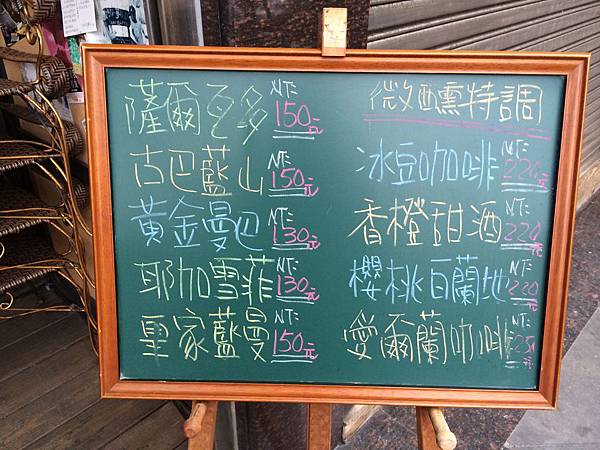 薩爾瓦多 NT: 150元
古巴藍山 NT: 150元
黃金曼巴 NT: 130元
耶加雪菲 NT: 130元
皇家藍曼 NT: 150元
微醺特調
冰豆咖啡 NT: 220元
香橙甜酒 NT: 220元
櫻桃白蘭地 NT: 220元
愛爾蘭咖啡 NT: